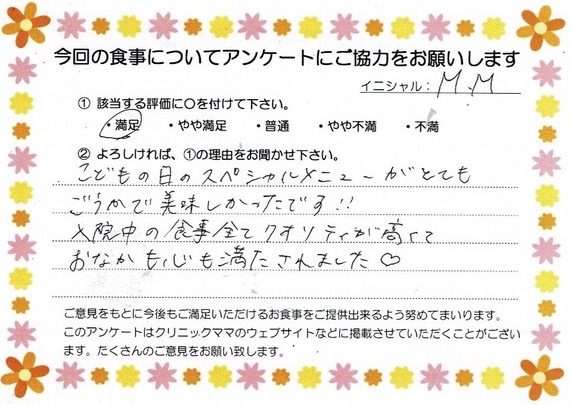 今回の食事についてアンケートにご協力をお願いします
イニシャル： M.M
① 該当する評価に○を付けて下さい。
・満足 ・やや満足 ・普通 ・やや不満 ・不満
② よろしければ、①の理由をお聞かせ下さい。
こどもの日のスペシャルメニューがとても
ごうかで美味しかったです!!
入院中の食事全てクオリティが高くて
おなかも心も満たされました♡
ご意見をもとに今後もご満足いただけるお食事をご提供出来るよう努めてまいります。
このアンケートはクリニックママのウェブサイトなどに掲載させていただくことがござい
ます。たくさんのご意見をお願い致します。